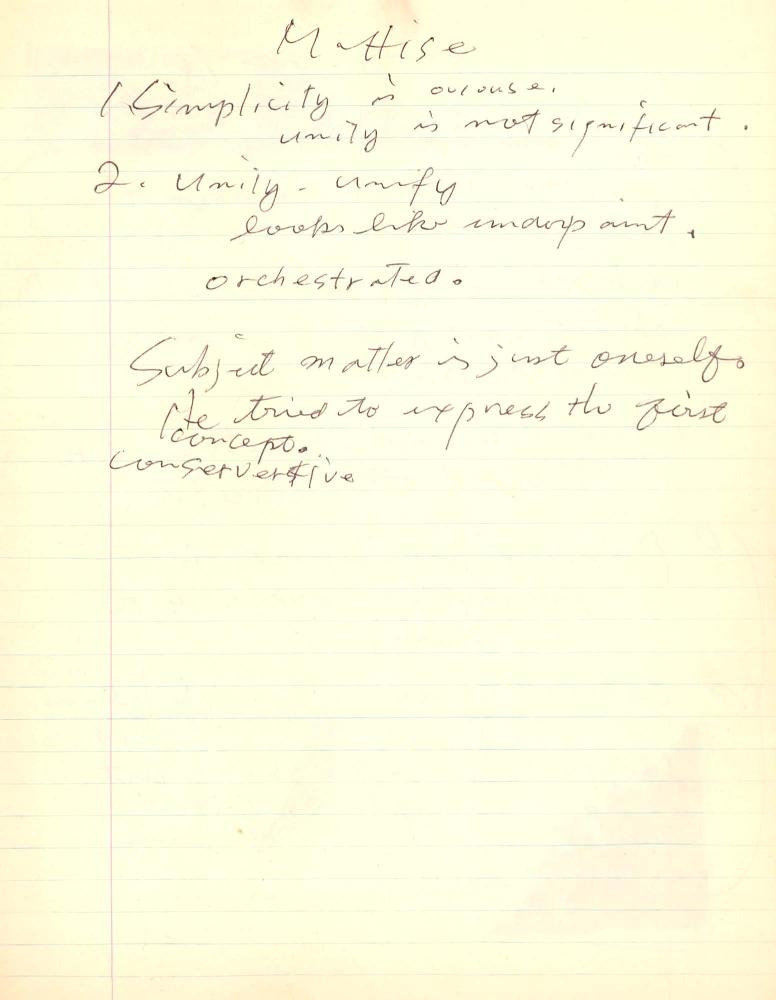 Mattise
1 Simplicity is
unity is not significant.
2. Unity - unify
looks like underpaint.
orchestrated.
Subject matter is just oneself.
He tried to express the first
concept.
conservertive